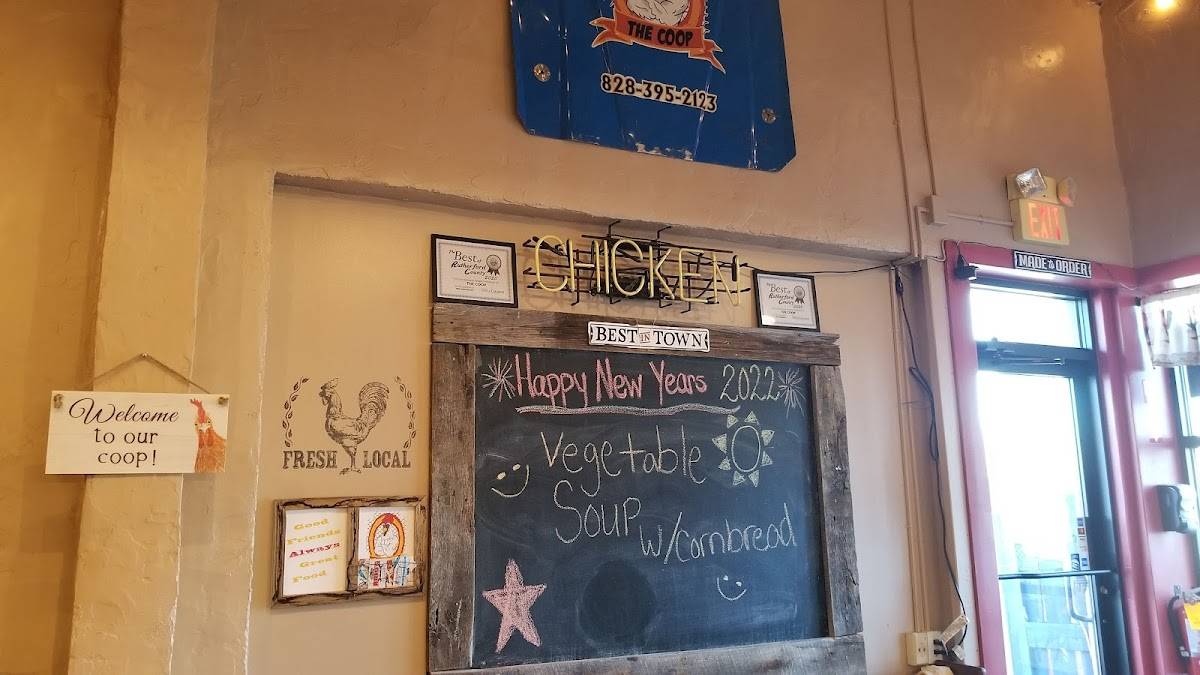 THE COOP
828-395-2123
CHICKEN
EXIT
MADE TO ORDER
The Best of
Rutherford
County
2020
THE COOP
Best of
Rutherford
County
THE COOP
BEST IN TOWN
Happy New Years 2022
Vegetable
Soup
w/Cornbread
Welcome
to our
coop!
FRESH LOCAL
Good
Friends
Always
Great
Food